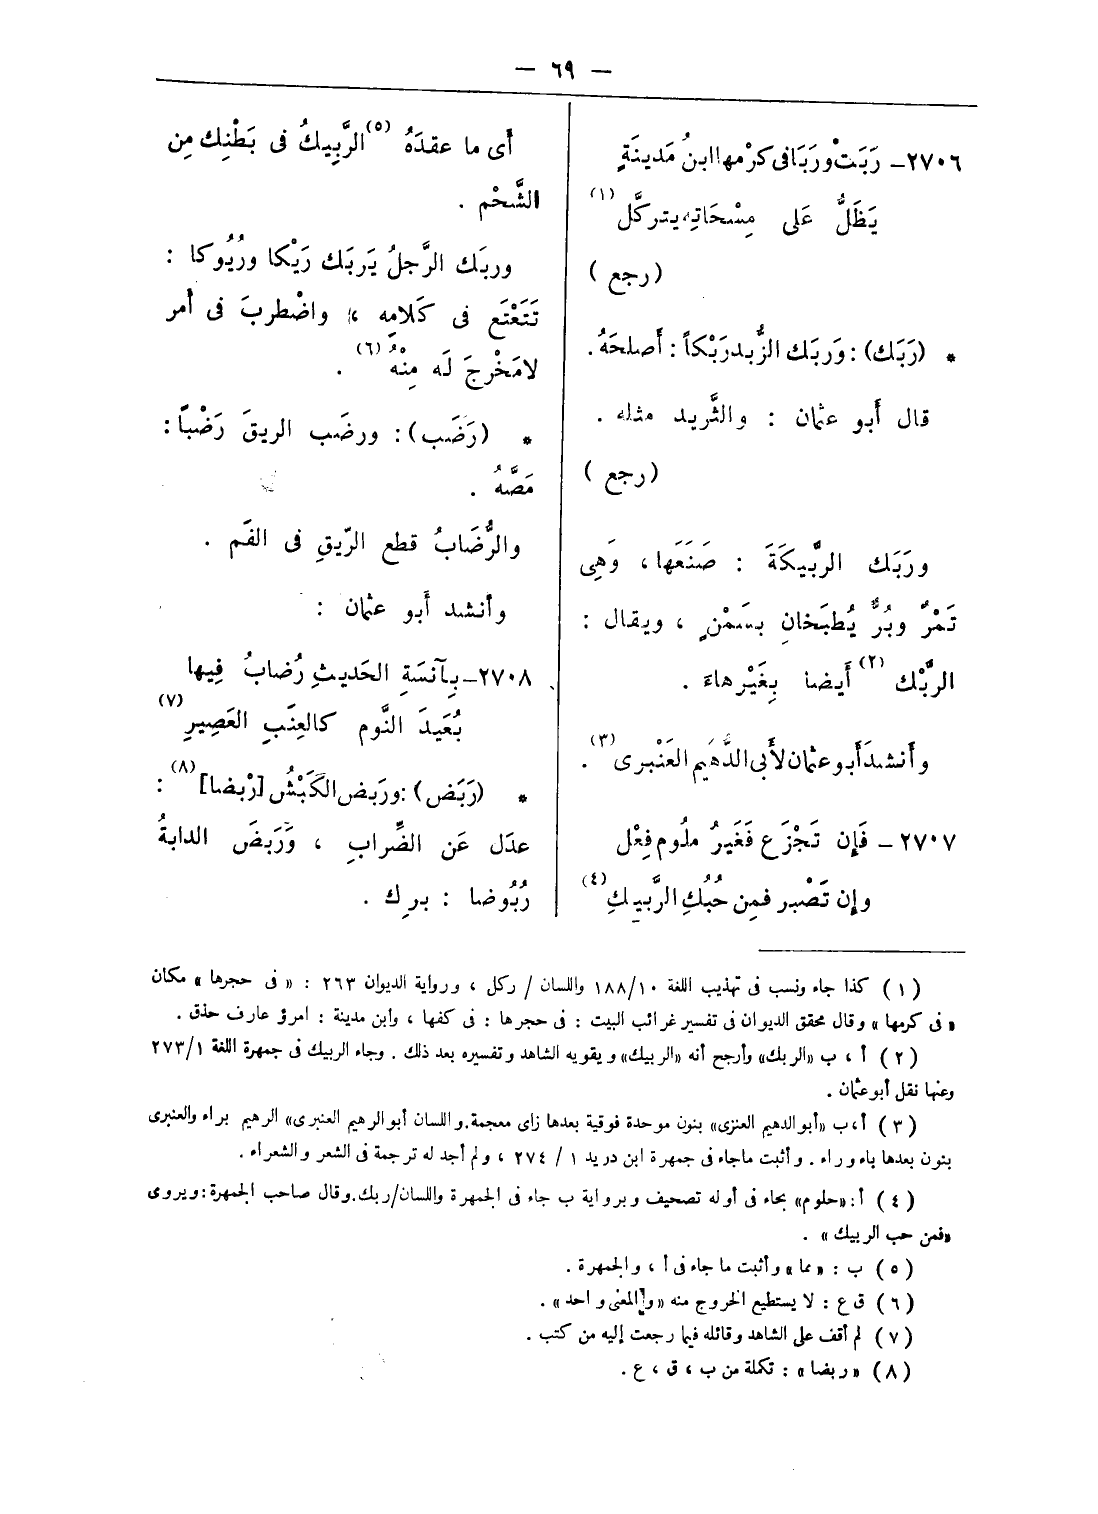 — ٦٩ —
٢٧٠٦ـ رَبَتْ وربَا فى كرْمها ابنُ مَدينَةٍ
يَظَلُّ عَلى مِسْحَاتِه يتركَّل (١)
(رجع)
* (رَبَك): وَربَك الزُّبد رَبْكاً: أَصلحَهُ.
قال أَبو عثمان : والثَّريد مثله .
(رجع)
ورَبَك الرَّبيكَةَ : صَنَعَها ، وَهِى
تَمْرٌ وبُرٌّ يُطبَخانِ بسَمْنٍ ، ويقال :
الرَّبْك (٢) أَيضا بِغَيْر هاء .
وأَنشد أَبو عثمان لأَبى الدَّهَيم العَنْبرى (٣) .
٢٧٠٧ ـ فَإن تَجْزَع فَغَيرُ ملُوم فِعْل
وإن تَصْبر فمِن حُبُكِ الرَّبيكِ (٤)
أَى ما عقدَهُ (٥) الرَّبِيكُ فى بَطْنِك مِن
الشَّحْم .
وربَك الرَّجلُ يَربَك رَبْكا ورُبُوكا :
تَتَعْتَع فى كَلامِه ، واضْطربَ فى أَمر
لامَخْرجَ لَه مِنْهُ (٦) .
* (رَضَب): ورضَب الريقَ رَضْباً :
مَصَّهُ .
والرُّضَابُ قطع الرّيقِ فى الفَم .
وأنشد أَبو عثمان :
٢٧٠٨ـ بآنسَةِ الحَديثِ رُضابُ فِيها
بُعَيدَ النَّوم كالعِنَبِ العَصِيرِ (٧)
* (رَبَض) : ورَبض الكَبْشُ [رَبْضا] (٨) :
عدَل عَن الضِّرابِ ، وَرَبضَ الدابةُ
رُبُوضا : برك .
(١) كذا جاء ونسب فى تهذيب اللغة ١٨٨/١٠ واللسان / ركل ، ورواية الديوان ٢٦٣ : « فى حجرها » مكان
« فى كرمها » وقال محقق الديوان فى تفسير غرائب البيت : فى حجرها : فى كفها ، وابن مدينة : امرؤ عارف حذق .
(٢) أ ، ب «الربك» وأرجح أنه «الربيك» ويقويه الشاهد وتفسيره بعد ذلك . وجاء الربيك فى جمهرة اللغة ٢٧٣/١
وعنها نقل أبو عثمان .
(٣) أ، ب «أبو الدهيم العنزى» بنون موحدة فوقية بعدها زاى معجمة. واللسان أبو الرهيم العنبرى» الرهيم براء والعنبرى
بنون بعدها باء وراء . وأثبت ماجاء فى جمهرة ابن دريد ١ / ٢٧٤ ، ولم أجد له ترجمة فى الشعر والشعراء .
(٤) أ: «حلوم» بحاء فى أوله تصحيف وبرواية ب جاء فى الجمهرة واللسان/ربك. وقال صاحب الجمهرة : ويروى
«فمن حب الربيك» .
(٥) ب : « مما » وأثبت ما جاء فى أ ، والجمهرة .
(٦) ق ع : لا يستطيع الخروج منه «والمعنى واحد» .
(٧) لم أقف على الشاهد وقائله فيما رجعت إليه من كتب .
(٨) «ربضا» : تكملة من ب ، ق ، ع .